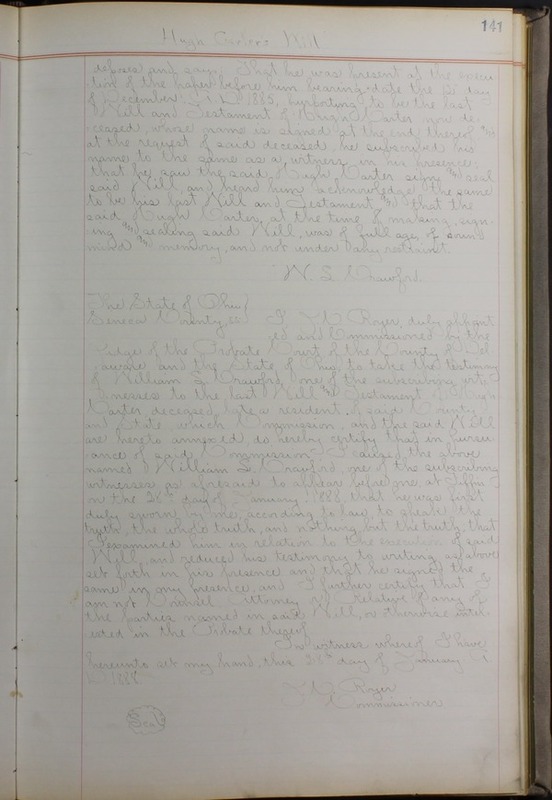 141
Hugh Carters Will
deposes and says. That he was present at the execu-
tion of the paper before him bearing date the 13" day
of December A.D. 1885, purporting to be the last
Will and Testament of Hugh Carter now de-
ceased, whose name is signed at the end thereof and
at the request of said deceased he subscribed his
name to the same as a witness in his presence;
that he saw the said Hugh Carter sign and seal
said Will, and heard him acknowledge the same
to be his last Will and Testament and that the
said Hugh Carter, at the time of making, sign-
ing and sealing said Will, was of full age, of sound
mind and memory, and not under any restraint.
W. S. Crawford.
The State of Ohio }
Seneca County ss I, Royer, duly appoint
ed and Commissioned by the
Judge of the Probate Court of the County of Del-
aware and the State of Ohio, to take the testimony
of William S. Crawford, one of the subscribing wit-
nesses to the last Will and Testament of Hugh
Carter deceased, late a resident of said County
and State, which Commission, and the said Will
are hereto annexed, do hereby certify that in pursu-
ance of said Commission I caused the above
named William S. Crawford, one of the subscribing
witnesses as aforesaid to appear before me, at Tiffin
on the 28" day of January 1888, that he was first
duly sworn by me, according to law, to speak the
truth, the whole truth, and nothing but the truth, that
I examined him in relation to the execution of said
Will, and reduced his testimony to writing as above
set forth in his presence and that he signed the
same in my presence, and I further certify that I
am not Counsel, Attorney or relative of any of
the parties named in said Will, or otherwise inter-
ested in the Probate thereof.
In witness whereof I have
hereunto set my hand, this 28" day of January A
D. 1888
Royer
Commissioner
Seal